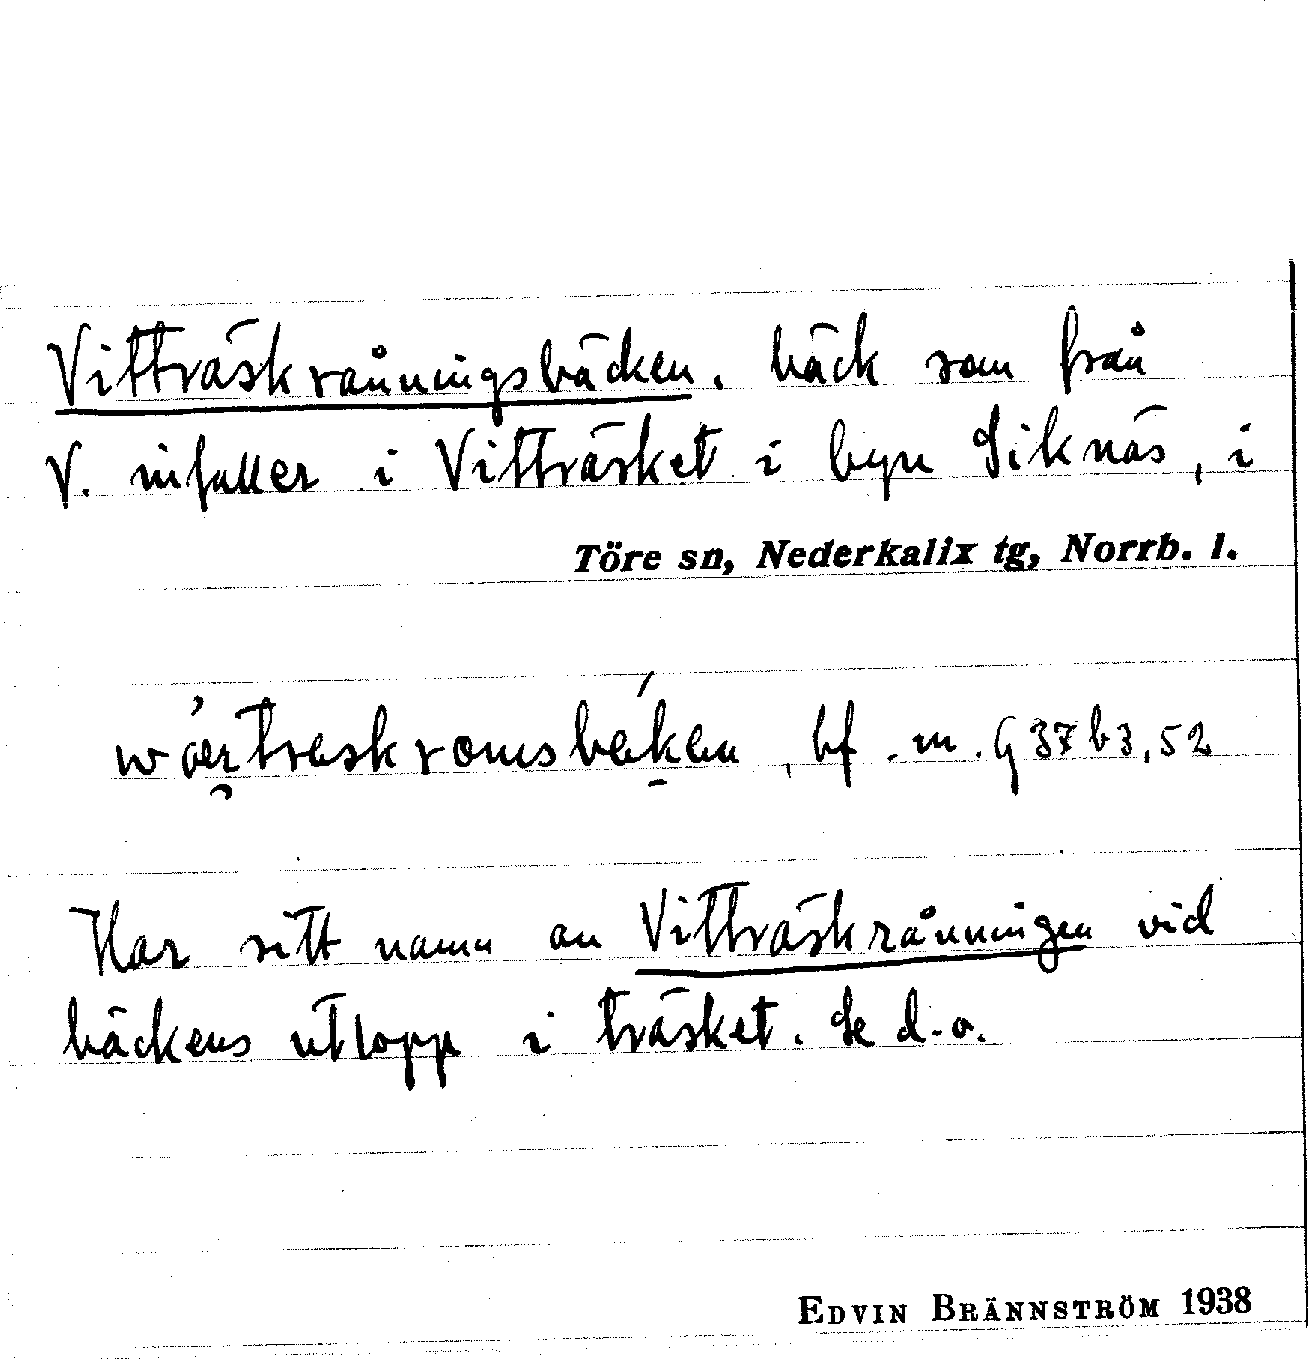 Vitträskrånningsbäcken. bäck som från
V. infaller i Vitträsket i byn Siknäs, i
Töre sn, Nederkalix tg, Norrb. l.
bf. m. G 37 b 3, 52
Har sitt namn av Vitträskrånningen vid
bäckens utlopp i träsket. Se d. o.
EDVIN BRÄNNSTRÖM 1938